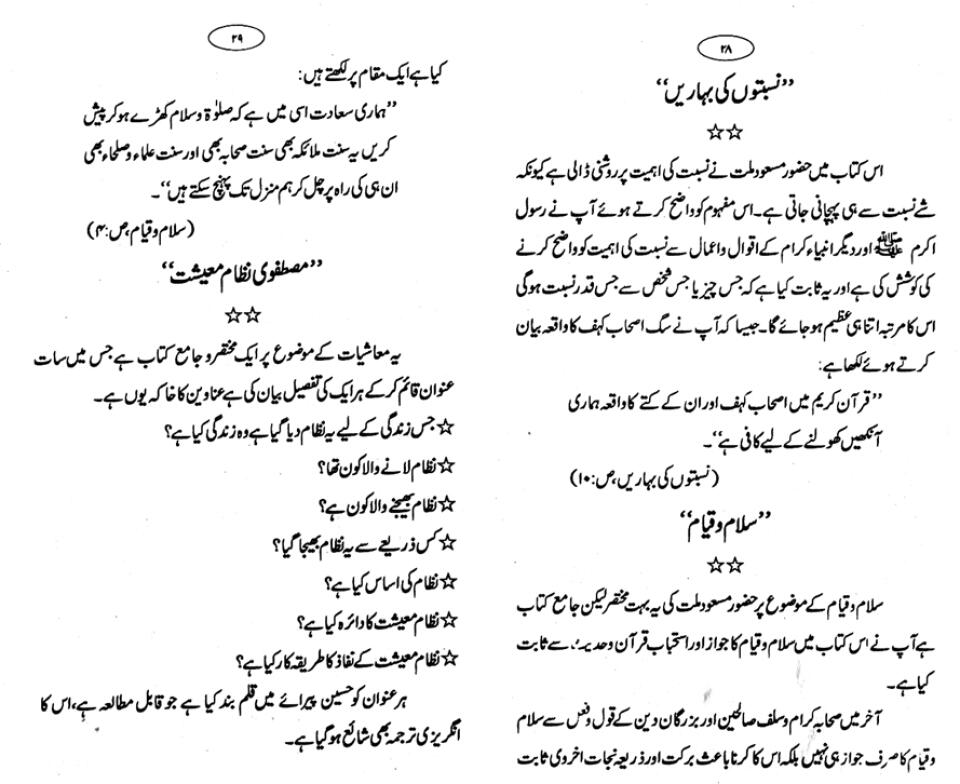 ۲۸
”نسبتوں کی بہاریں“
☆☆
اس کتاب میں حضور مسعود ملت نے نسبت کی اہمیت پر روشنی ڈالی ہے کیونکہ
شے نسبت سے ہی پہچانی جاتی ہے۔ اس مفہوم کو واضح کرتے ہوئے آپ نے رسول
اکرم ﷺ اور دیگر انبیاء کرام کے اقوال واعمال سے نسبت کی اہمیت کو واضح کرنے
کی کوشش کی ہے اور یہ ثابت کیا ہے کہ جس چیز یا جس شخص سے جس قدر نسبت ہوگی
اس کا مرتبہ اتنا ہی عظیم ہو جائے گا۔ جیسا کہ آپ نے سگ اصحاب کہف کا واقعہ بیان
کرتے ہوئے لکھا ہے:
”قرآن کریم میں اصحاب کہف اور ان کے کتے کا واقعہ ہماری
آنکھیں کھولنے کے لیے کافی ہے“۔
(نسبتوں کی بہاریں، ص:۱۰)
”سلام و قیام“
☆☆
سلام و قیام کے موضوع پر حضور مسعود ملت کی یہ بہت مختصر لیکن جامع کتاب
ہے آپ نے اس کتاب میں سلام و قیام کا جواز اور استحباب قرآن و حدیث سے ثابت
کیا ہے۔
آخر میں صحابہ کرام و سلف صالحین اور بزرگان دین کے قول و فعل سے سلام
و قیام کا صرف جواز ہی نہیں بلکہ اس کا کرنا باعث برکت اور ذریعہ نجات اخروی ثابت
۲۹
کیا ہے ایک مقام پر لکھتے ہیں:
”ہماری سعادت اسی میں ہے کہ صلوٰۃ و سلام کھڑے ہو کر پیش
کریں یہ سنت ملائکہ بھی سنت صحابہ بھی اور سنت علماء و صلحاء بھی
ان ہی کی راہ پر چل کر ہم منزل تک پہنچ سکتے ہیں“۔
(سلام و قیام، ص:۴)
”مصطفوی نظام معیشت“
☆☆
یہ معاشیات کے موضوع پر ایک مختصر و جامع کتاب ہے جس میں سات
عنوان قائم کر کے ہر ایک کی تفصیل بیان کی ہے عناوین کا خاکہ یوں ہے۔
☆ جس زندگی کے لیے یہ نظام دیا گیا ہے وہ زندگی کیا ہے؟
☆ نظام لانے والا کون تھا؟
☆ نظام بھیجنے والا کون ہے؟
☆ کس ذریعے سے یہ نظام بھیجا گیا؟
☆ نظام کی اساس کیا ہے؟
☆ نظام معیشت کا دائرہ کیا ہے؟
☆ نظام معیشت کے نفاذ کا طریقہ کار کیا ہے؟
ہر عنوان کو حسین پیرائے میں قلم بند کیا ہے جو قابل مطالعہ ہے، اس کا
انگریزی ترجمہ بھی شائع ہو گیا ہے۔